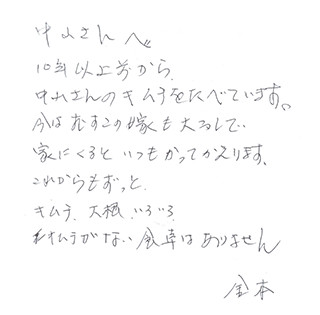 中山さんへ
10年以上前から、
中山さんのキムチをたべています。
今はむすこの家も大るして
家にくるといつもかってかえります。
これからもずっと、
キムチ、大根、いろいろ
キムチがない食卓はありません
金本